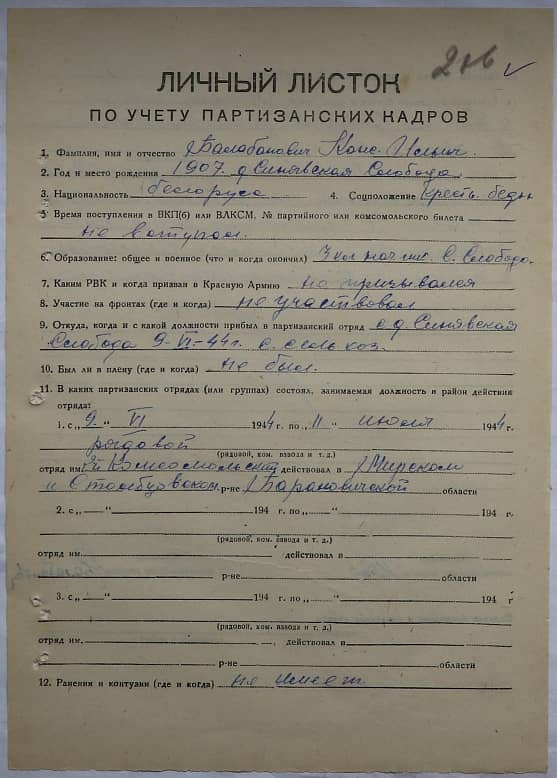 ЛИЧНЫЙ ЛИСТОК
ПО УЧЕТУ ПАРТИЗАНСКИХ КАДРОВ
1. Фамилия, имя и отчество Балабанович Конс. Ильич
2. Год и место рождения 1907. д. Синявская Слобода.
3. Национальность белорусс 4. Соцположение крест. бедн
5. Время поступления в ВКП(б) или ВЛКСМ, № партийного или комсомольского билета
не вступал.
6. Образование: общее и военное (что и когда окончил) 3 кл С. Слобода.
7. Каким РВК и когда призван в Красную Армию не призывался
8. Участие на фронтах (где и когда) не участвовал
9. Откуда, когда и с какой должности прибыл в партизанский отряд с д. Синявская
Слобода 9-VI-44г. с. сельхоз.
10. Был ли в плену (где и когда) не был.
11. В каких партизанских отрядах (или группах) состоял, занимаемая должность и район действия
отряда:
1. с „ 9. “ VI 1944 г. по „ 11 “ июля 1944 г.
рядовой
(рядовой, ком. взвода и т. д.)
отряд им. Комсомольский действовал в Мирском
и Столбцовском р-не Барановичской области
2. с „ “ 194 г. по „ “ 194 г.
(рядовой, ком. взвода и т. д.)
отряд им. действовал в
р-не области
3. с „ “ 194 г. по „ “ 194 г
(рядовой, ком. взвода и т. д.)
отряд им. , действовал в
р-не области
12. Ранения и контузии (где и когда) не имеет